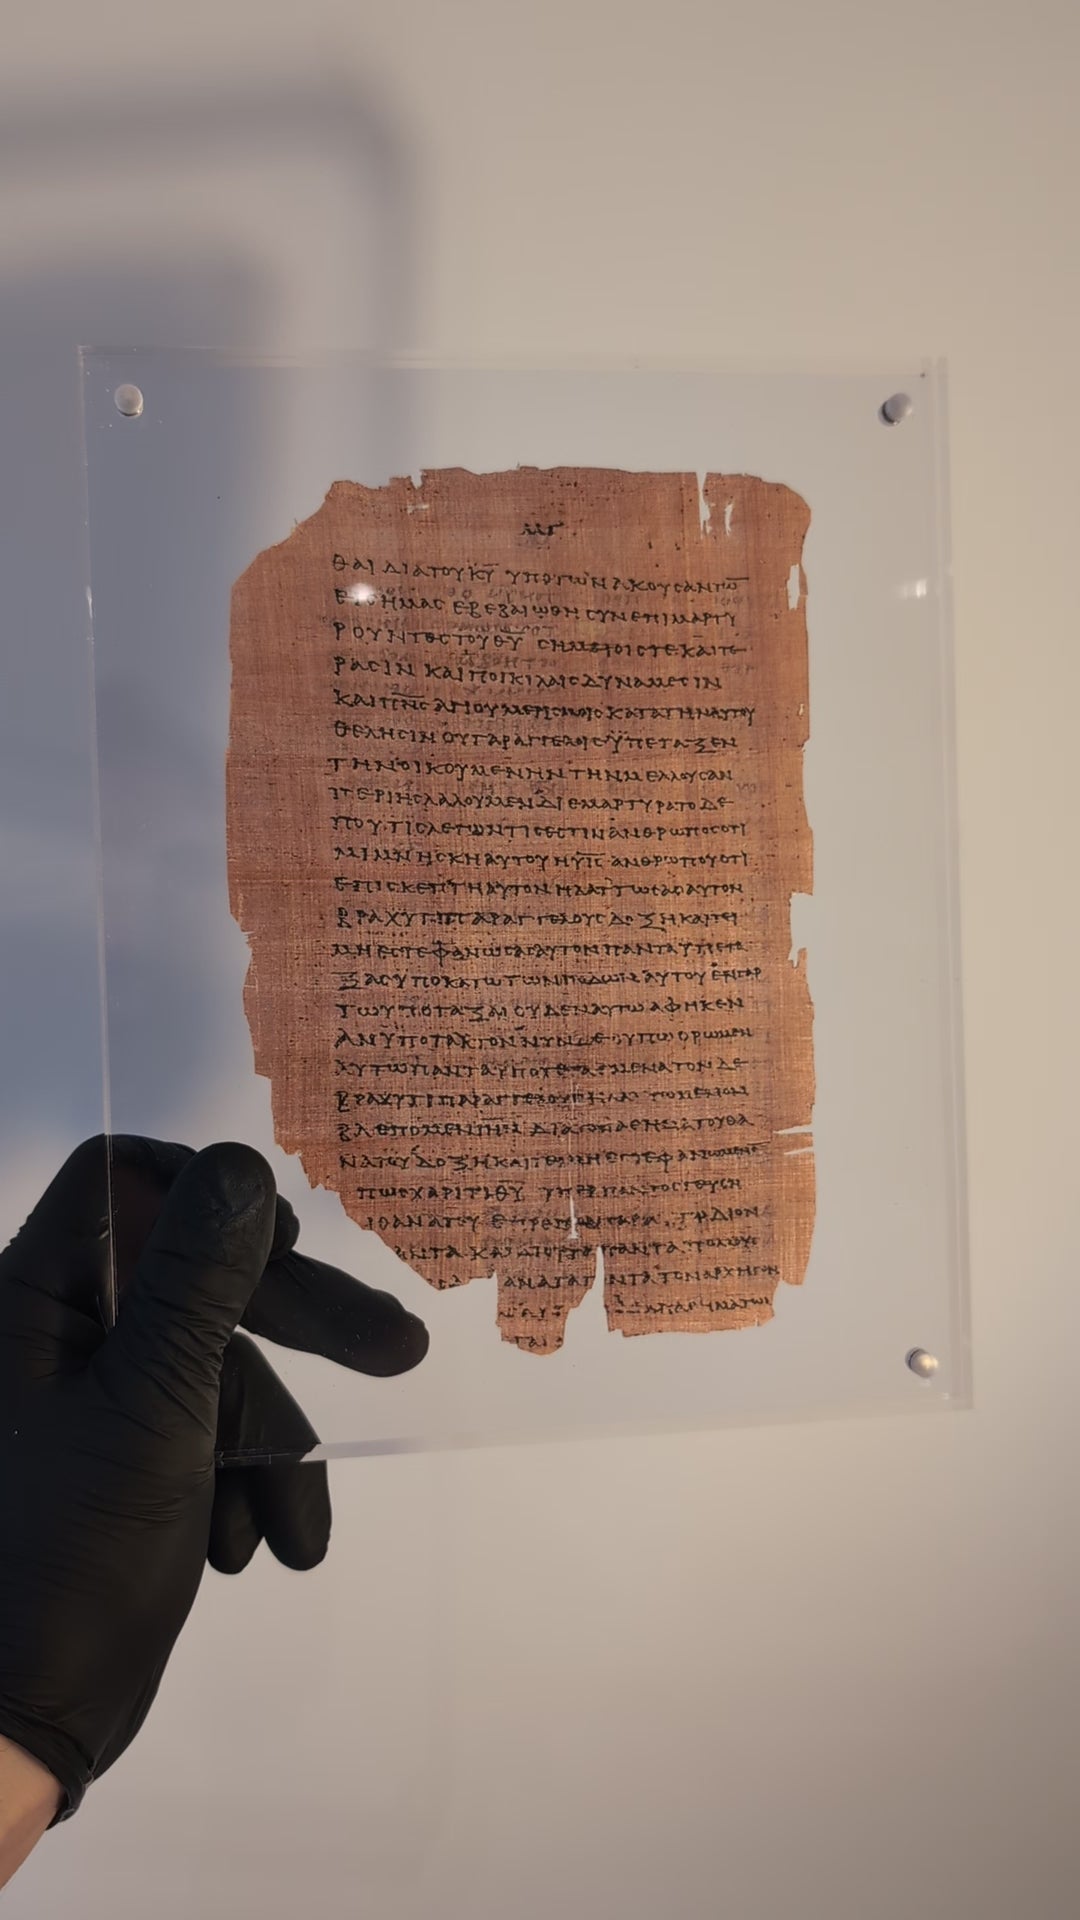 ΜΓ
ΘΑΙ ΔΙΑ ΤΟΥ Κ̅Υ̅ ΥΠΟ ΤΩΝ ΑΚΟΥΣΑΝΤΩ̅
ΕΙΣ ΗΜΑΣ ΕΒΕΒΑΙΩΘΗ ΣΥΝΕΠΙΜΑΡΤΥ
ΡΟΥΝΤΟΣ ΤΟΥ Θ̅Υ̅ ΣΗΜΕΙΟΙΣ ΤΕ ΚΑΙ ΤΕ
ΡΑΣΙΝ ΚΑΙ ΠΟΙΚΙΛΑΙΣ ΔΥΝΑΜΕΣΙΝ
ΚΑΙ Π̅Ν̅Σ̅ ΑΓΙΟΥ ΜΕΡΙΣΜΟΙΣ ΚΑΤΑ ΤΗΝ ΑΥΤΟΥ
ΘΕΛΗΣΙΝ ΟΥ ΓΑΡ ΑΓΓΕΛΟΙΣ ΫΠΕΤΑΞΕΝ
ΤΗΝ ΟΙΚΟΥΜΕΝΗΝ ΤΗΝ ΜΕΛΛΟΥΣΑΝ
ΠΕΡΙ ΗΣ ΛΑΛΟΥΜΕΝ ΔΙΕΜΑΡΤΥΡΑΤΟ ΔΕ
ΠΟΥ ΤΙΣ ΛΕΓΩΝ ΤΙΣ ΕΣΤΙΝ ΑΝΘΡΩΠΟΣ ΟΤΙ
ΜΙΜΝΗΣΚΗ ΑΥΤΟΥ Η Υ̅Ι̅Σ̅ ΑΝΘΡΩΠΟΥ ΟΤΙ
ΕΠΙΣΚΕΠΤΗ ΑΥΤΟΝ ΗΛΑΤΤΩΣΑΣ ΑΥΤΟΝ
ΒΡΑΧΥ ΤΙ ΠΑΡ ΑΓΓΕΛΟΥΣ ΔΟΞΗ ΚΑΙ ΤΕΙ
ΜΗ ΕΣΤΕΦΑΝΩΣΑΣ ΑΥΤΟΝ ΠΑΝΤΑ ΥΠΕΤΑ
ΞΑΣ ΥΠΟΚΑΤΩ ΤΩΝ ΠΟΔΩΝ ΑΥΤΟΥ ΕΝ ΓΑΡ
ΤΩ ΥΠΟΤΑΞΑΙ ΟΥΔΕΝ ΑΥΤΩ ΑΦΗΚΕΝ
ΑΝΥΠΟΤΑΚΤΟΝ ΝΥΝ ΔΕ ΟΥΠΩ ΟΡΩΜΕΝ
ΑΥΤΩ ΠΑΝΤΑ ΥΠΟΤΕΤΑΓΜΕΝΑ ΤΟΝ ΔΕ
ΒΡΑΧΥ ΤΙ ΠΑΡ ΑΓΓΕΛΟΥΣ ΗΛΑΤΤΩΜΕΝΟΝ
ΒΛΕΠΟΜΕΝ ΔΙΑ ΤΟ ΠΑΘΗΜΑ ΤΟΥ ΘΑ
ΝΑΤΟΥ ΔΟΞΗ ΚΑΙ ΤΕΙΜΗ ΕΣΤΕΦΑΝΩΜΕΝΟ̅
ΠΩΣ ΧΑΡΙΤΙ Θ̅Υ̅ ΥΠΕΡ ΠΑΝΤΟΣ ΓΕΥΣΗ
ΘΑΝΑΤΟΥ ΕΠΡΕΠΕΝ ΓΑΡ ΔΙ ΟΝ
ΝΤΑ ΚΑΙ ΔΙ ΟΥ ΤΑ ΠΑΝΤΑ ΠΟΛΛΟΥΣ
ΑΝΑΓΑΓΟΝΤΑ ΤΟΝ ΑΡΧΗΓΟΝ